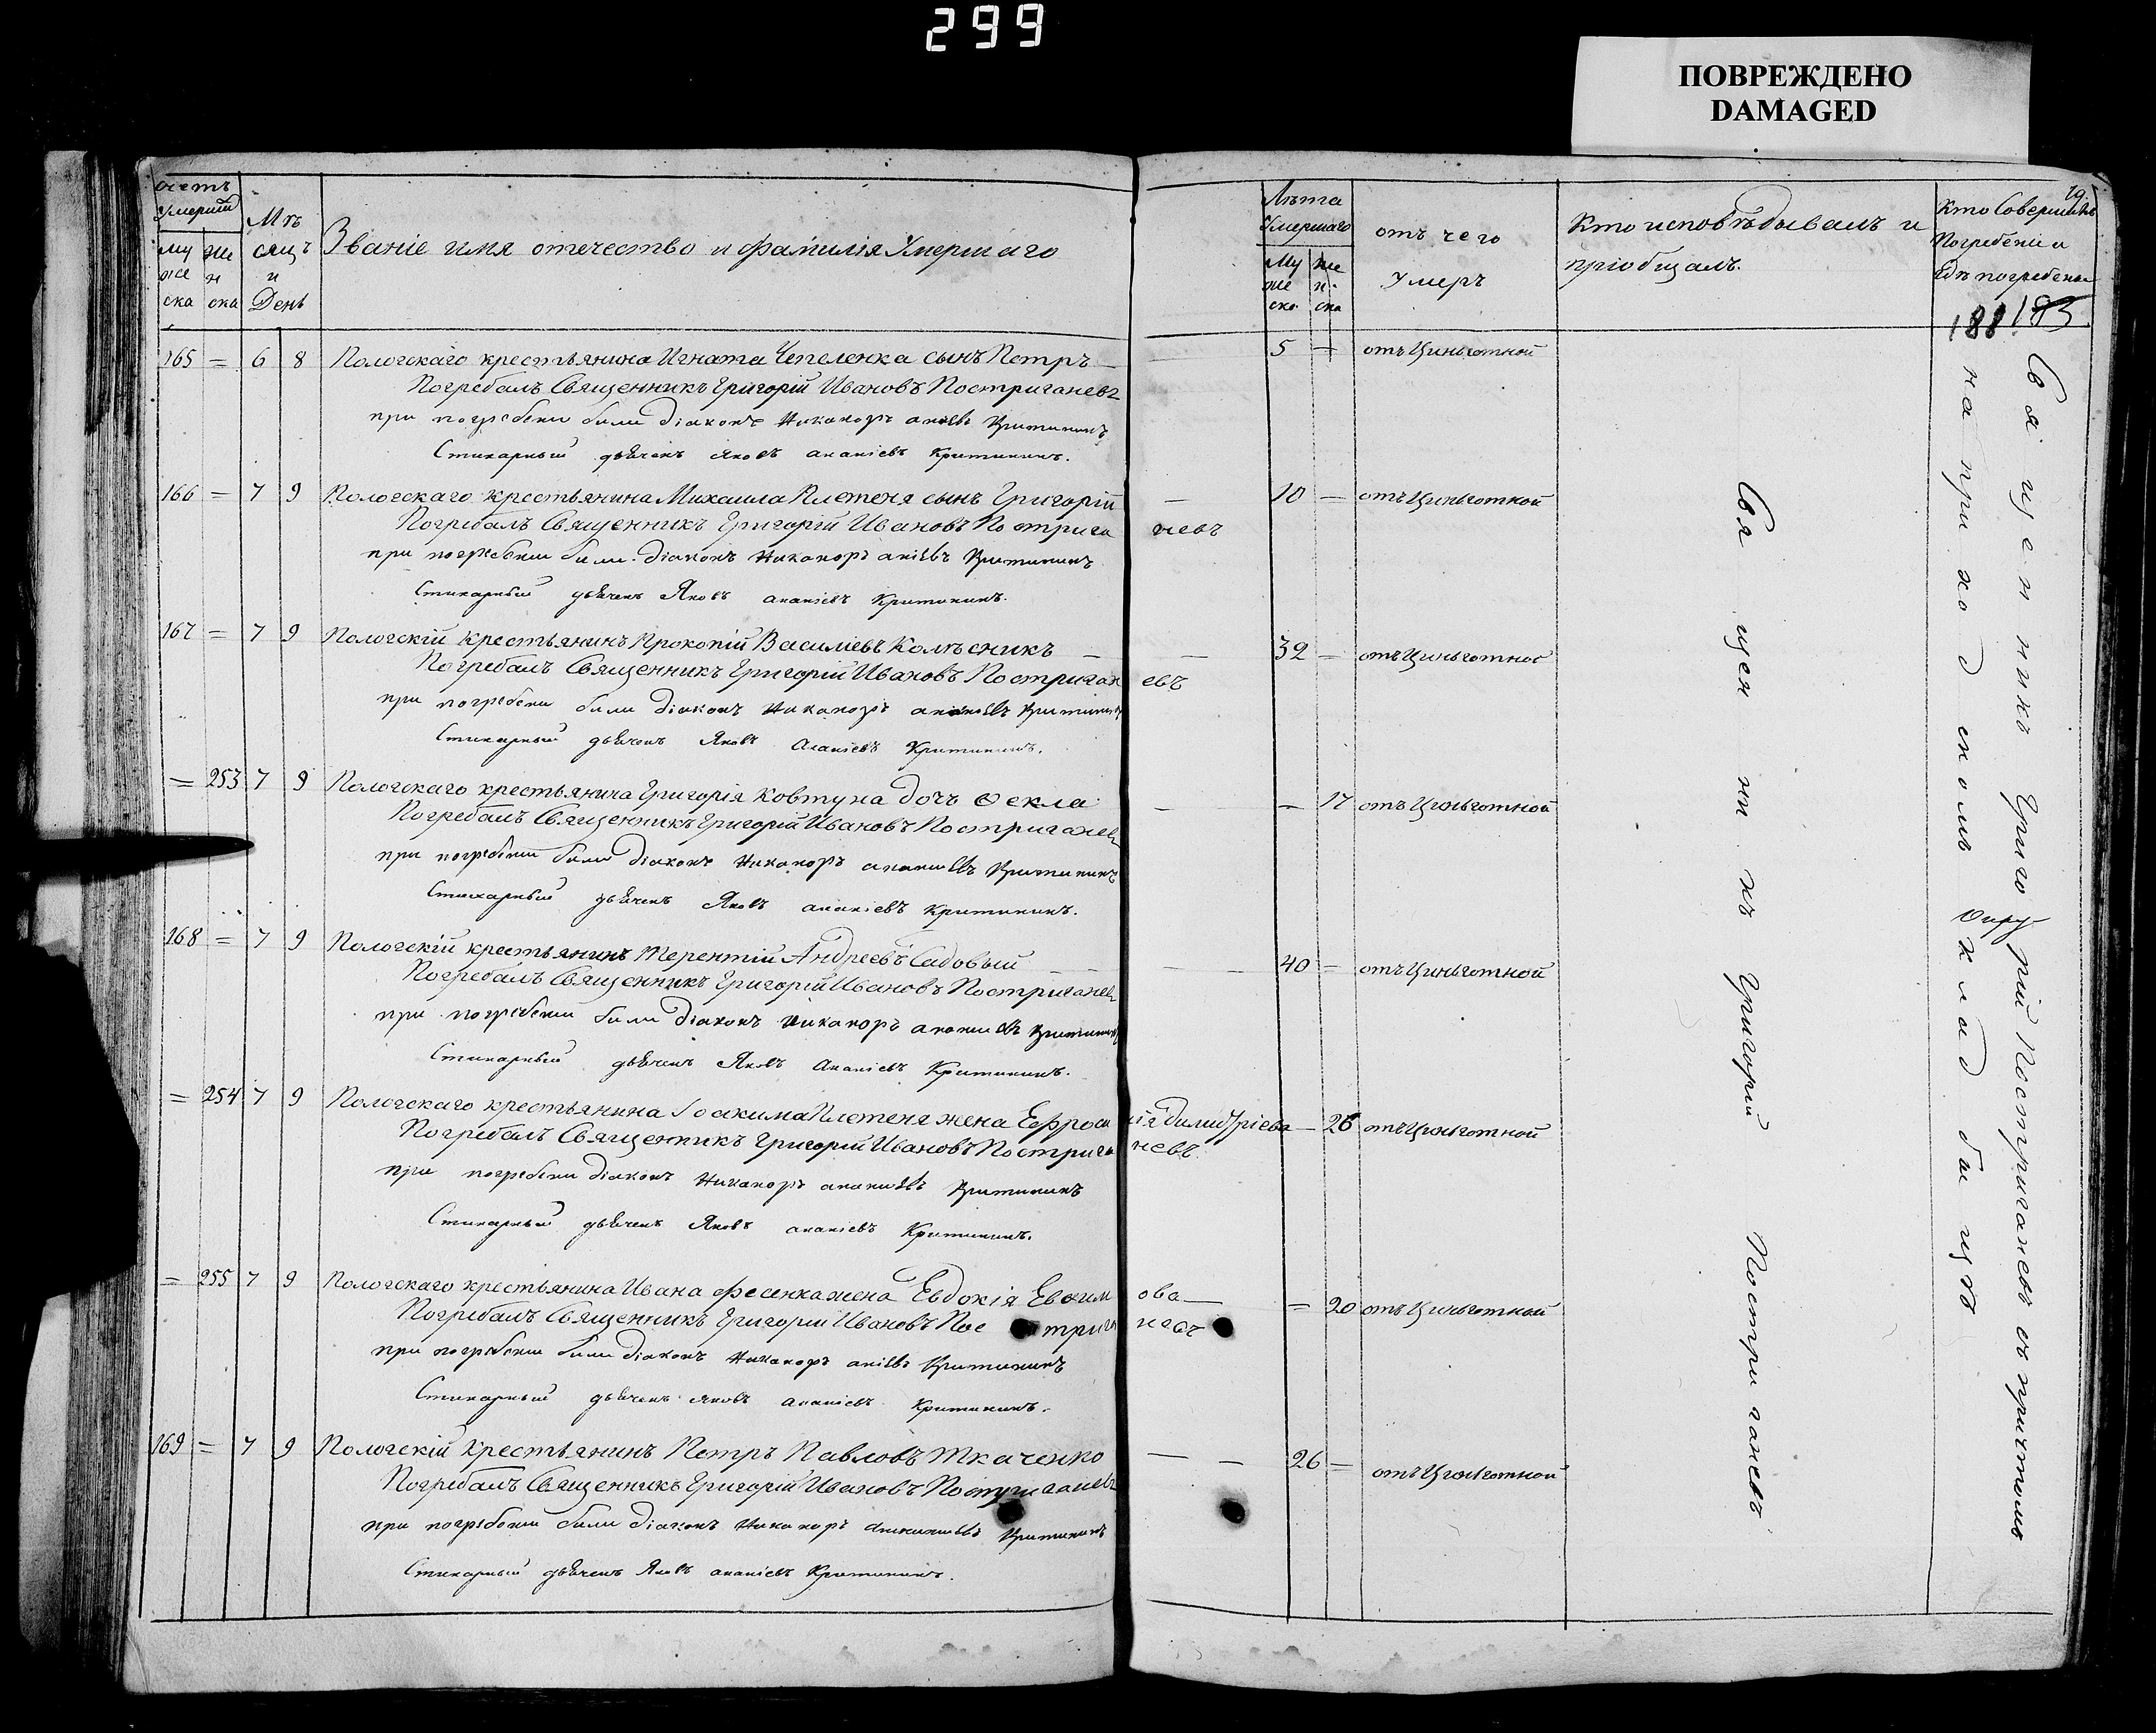 299
ПОВРЕЖДЕНО
DAMAGED
счетъ умершй
муже ска
жен ска
Мѣсяцъ и День
Званіе имя отечество и фамилія Умершаго
Лѣта Умершаго
Муже ска
жен ска
отъ чего Умеръ
Кто исповѣдывалъ и пріобщалъ.
Кто Совершалъ Погребеніе и Гдѣ погребены
188
165 = 6 8 Пологскаго крестьянина Игната Чепеленка сынъ Петръ — 5 — отъ Цинготной
Погребалъ Священникъ Григорій Ивановъ Постриганевъ
при погребени били діаконъ Никаноръ Критининъ
Стихарный дьячекъ Яковъ ананіевъ Критининъ.
166 = 7 9 Пологскаго крестьянина Михаила Плетеня сынъ Григорій — 10 — отъ Цинготной
Погребалъ Священникъ Григорій Ивановъ Постриганевъ
при погребении били діаконъ Никаноръ Критининъ
Стихарный дьячекъ Яковъ ананіевъ Критининъ.
167 = 7 9 Пологскій крестьянинъ Прокопій Василіевъ Колѣсникъ — — 32 — отъ Цинготной
Погребалъ Священникъ Григорій Ивановъ Постриганевъ
при погребени били діаконъ Никаноръ Критининъ
Стихарный дьячекъ Яковъ Ананіевъ Критининъ.
= 253 7 9 Пологскаго крестьянина Григорія Ковтуна дочь Ѳекла — — 17 отъ Цинготной
Погребалъ Священникъ Григорій Ивановъ Постриганевъ
при погребении били діаконъ Никаноръ Критининъ
Стихарный дьячекъ Яковъ ананіевъ Критининъ.
168 = 7 9 Пологскій крестьянинъ Терентій Андреевъ Садовый — — 40 — отъ Цинготной
Погребалъ Священникъ Григорій Ивановъ Постриганевъ
при погребении били діаконъ Никаноръ Критининъ
Стихарный дьячекъ Яковъ Ананіевъ Критининъ.
= 254 7 9 Пологскаго крестьянина Іоакима Плетеня жена — 26 отъ Цинготной
Погребалъ Священникъ Григорій Ивановъ Постриганевъ
при погребени діаконъ Никаноръ Критининъ
Стихарный дьячекъ Яковъ ананіевъ Критининъ.
= 255 7 9 Пологскаго крестьянина Ивана Фесенка жена Евдокія — = 20 отъ Цинготной
Погребалъ Священникъ Григорій Ивановъ Постриганевъ
при погребении били діаконъ Никаноръ Критининъ
Стихарный дьячекъ Яковъ Ананіевъ Критининъ.
169 = 7 9 Пологскій крестьянинъ Петръ Павловъ Ткаченко — — 26 = отъ Цинготной
Погребалъ Священникъ Григорій Ивановъ Постриганевъ
при погребении били діаконъ Никаноръ Критининъ
Стихарный дьячекъ Яковъ ананіевъ Критининъ.
Священникъ Григорій Постриганевъ
Священникъ Григорій Постриганевъ съ причтомъ
на приходскомъ кладбищѣ